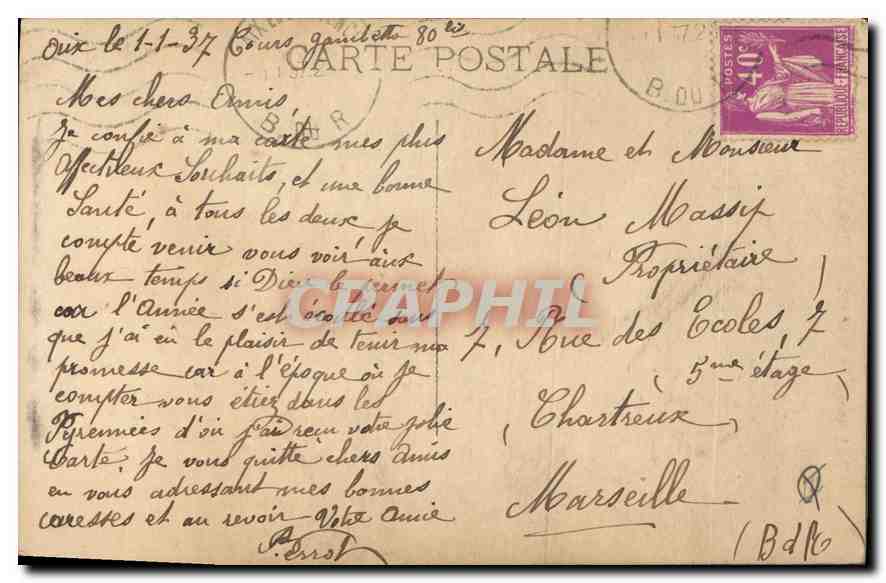 Aix le 1-1-37 Cours gambetta 80 bis
CARTE POSTALE
B. DU R
B. DU
POSTES
40c
REPUBLIQUE FRANCAISE
Mes chers Amis,
Je confie à ma carte mes plus
affectueux Souhaits, et une bonne
Santé, à tous les deux je
compte venir vous voir aux
beaux temps si Dieu le permet
car l'Année s'est écoulée sans
que j'ai eu le plaisir de tenir ma
promesse car à l'époque où Je
compter vous étiez dans les
Pyrennées d'où j'ai reçu votre jolie
Carte, Je vous quitte chers Amis
en vous adressant mes bonnes
caresses et au revoir Votre Amie
Perrot
Madame et Monsieur
Léon Massip
( Propriétaire )
7, Rue des Ecoles, 7
( 5me étage )
( Chartreux )
Marseille
(B d R)
CPAPHIL